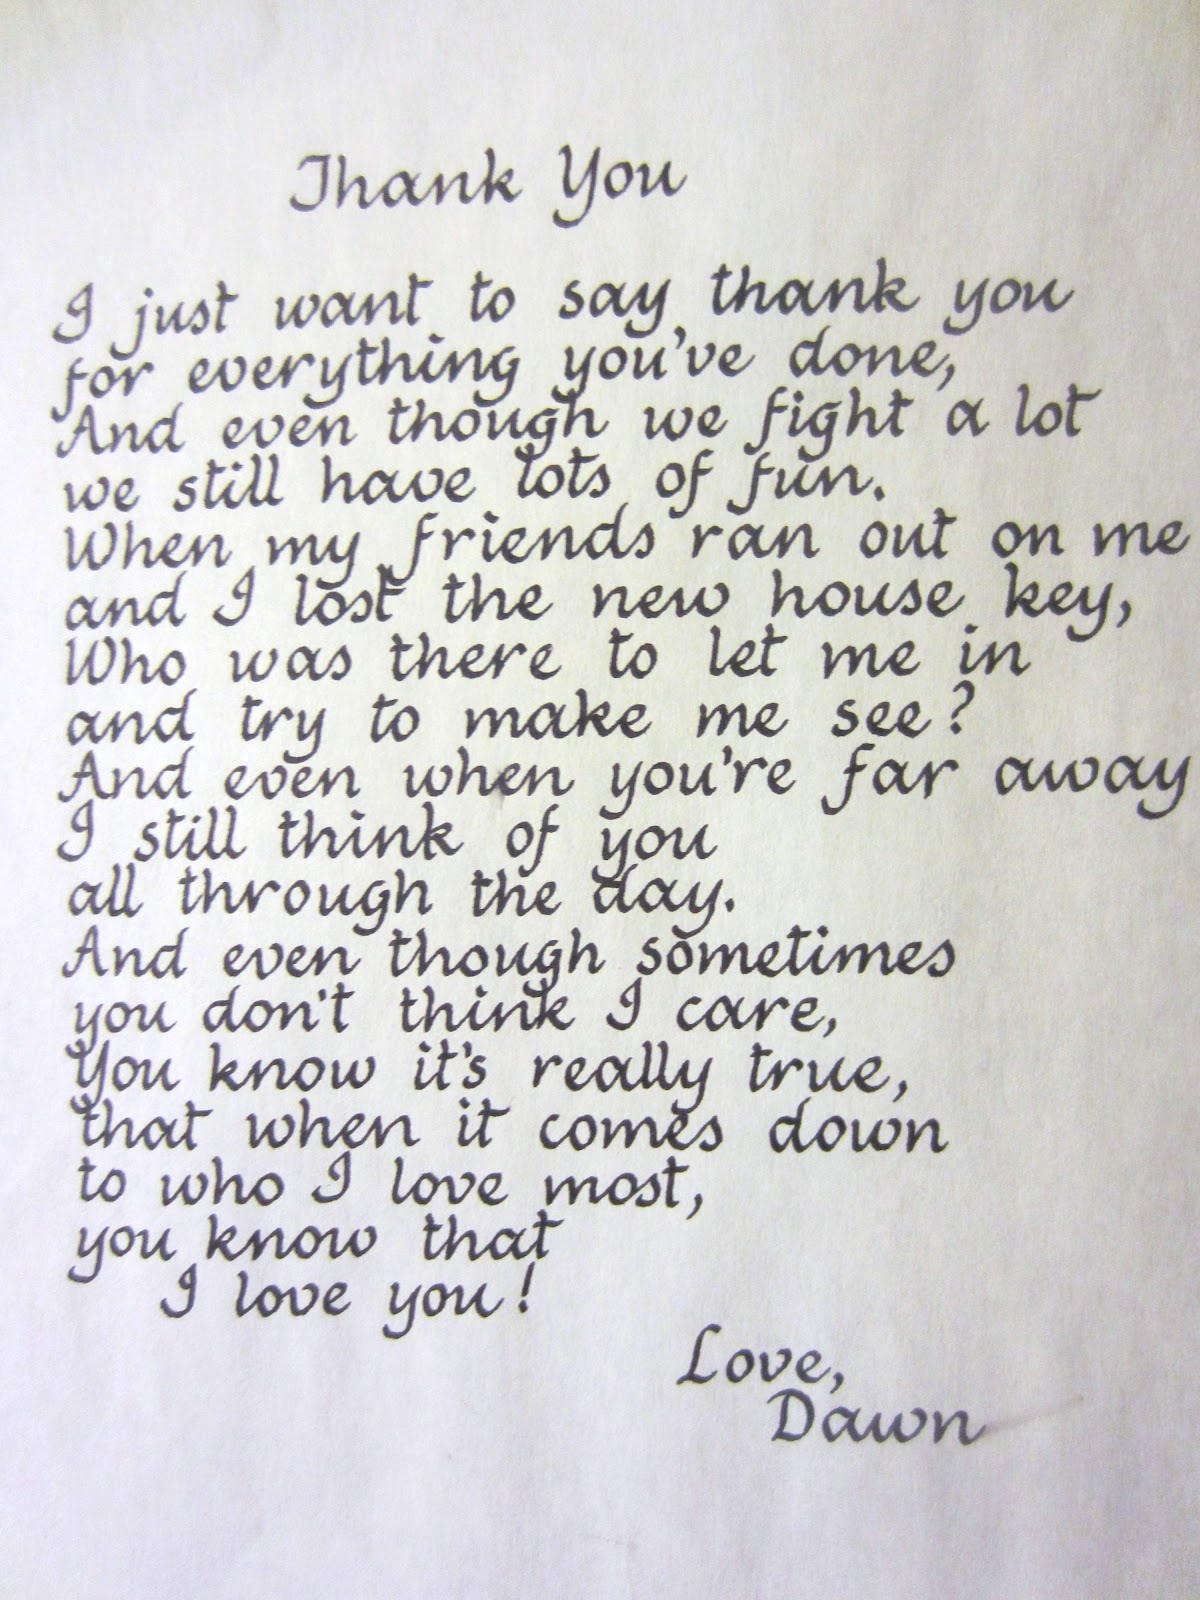 Thank You
I just want to say thank you
for everything you've done,
And even though we fight a lot
we still have lots of fun.
When my friends ran out on me
and I lost the new house key,
Who was there to let me in
and try to make me see?
And even when you're far away
I still think of you
all through the day.
And even though sometimes
you don't think I care,
You know it's really true,
that when it comes down
to who I love most,
you know that
I love you!
Love,
Dawn